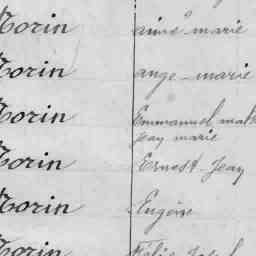 Morin aimé marie
Morin ange marie
Morin Emmanuel
Jean marie
Morin Ernest Jean
Morin Eugène
Morin